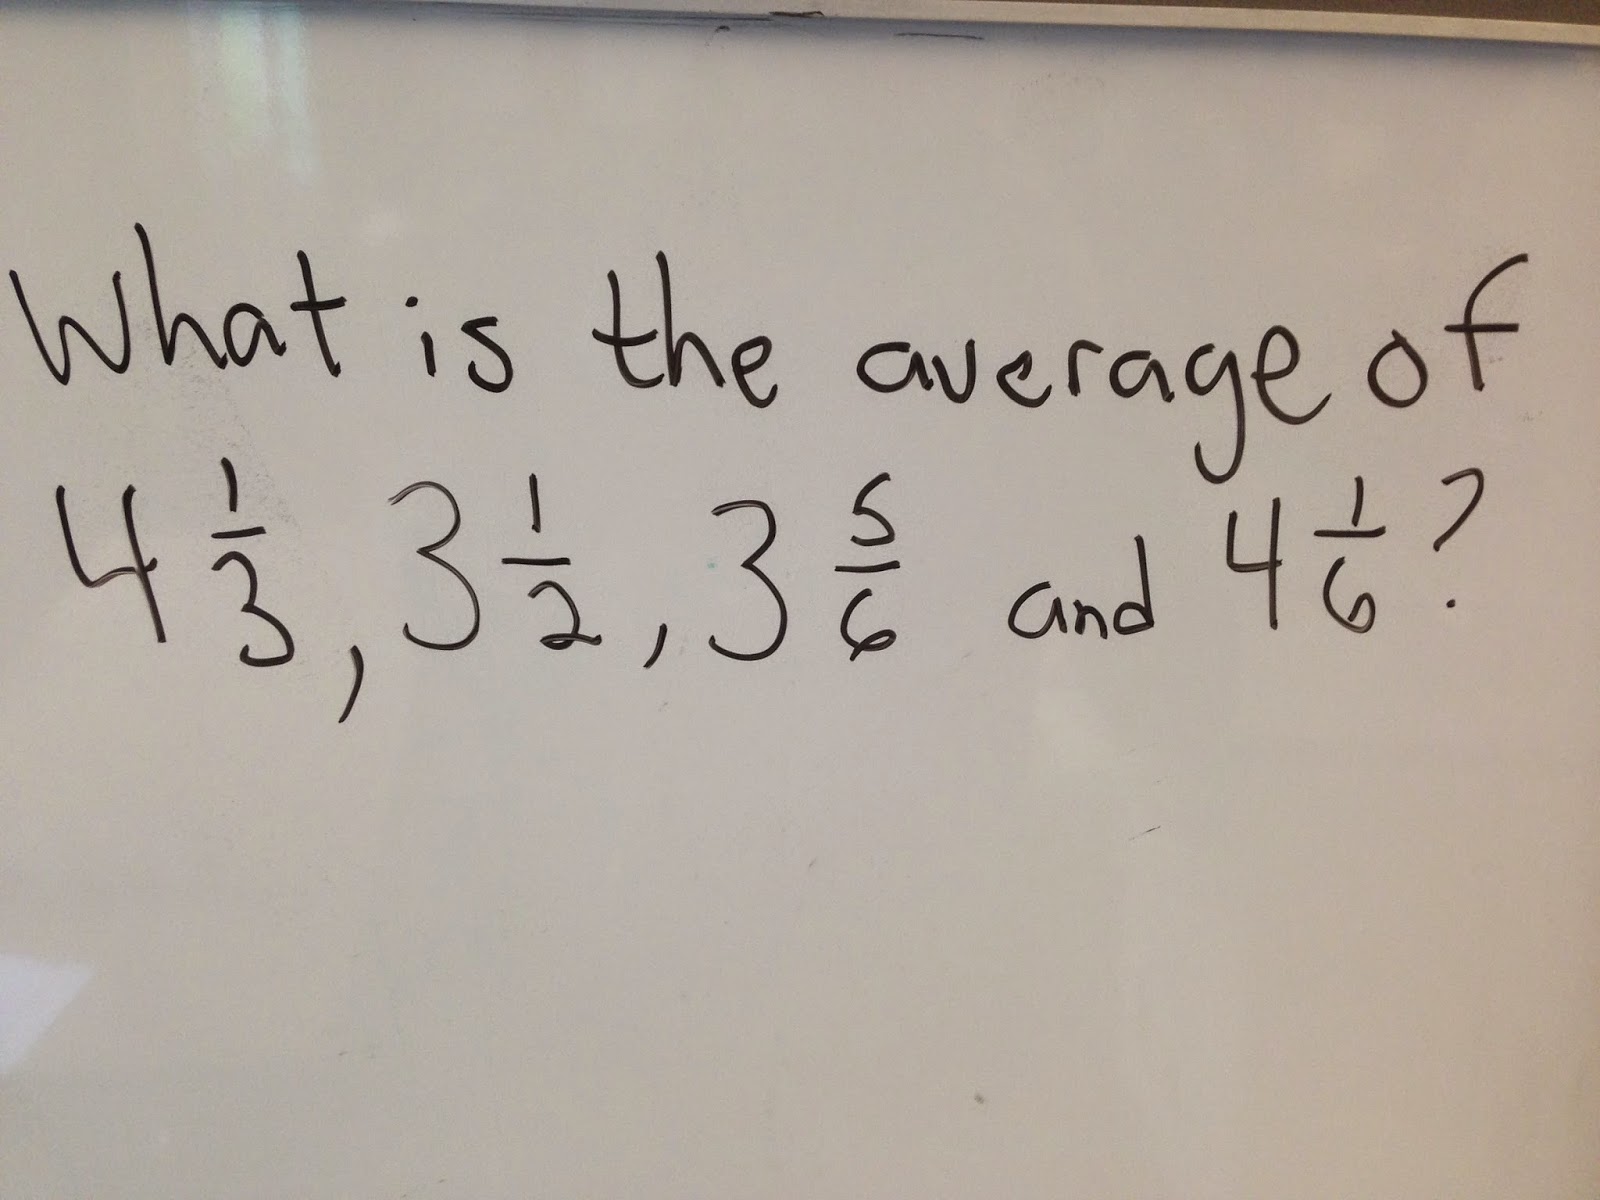 What is the average of
4 1/3, 3 1/2, 3 5/6 and 4 1/6?